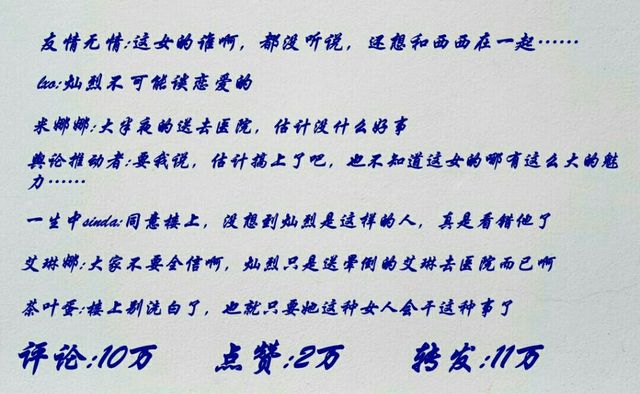 友情无情:这女的谁啊，都没听说，还想和西西在一起……
lxo:灿烈不可能谈恋爱的
米娜娜:大半夜的送去医院，估计没什么好事
舆论推动者:要我说，估计搞上了吧，也不知道这女的哪有这么大的魅
力……
一生中sinda:同意楼上，没想到灿烈是这样的人，真是看错他了
艾琳娜:大家不要全信啊，灿烈只是送晕倒的艾琳去医院而已啊
茶叶蛋:楼上别洗白了，也就只要她这种女人会干这种事了
评论:10万 点赞:2万 转发:11万